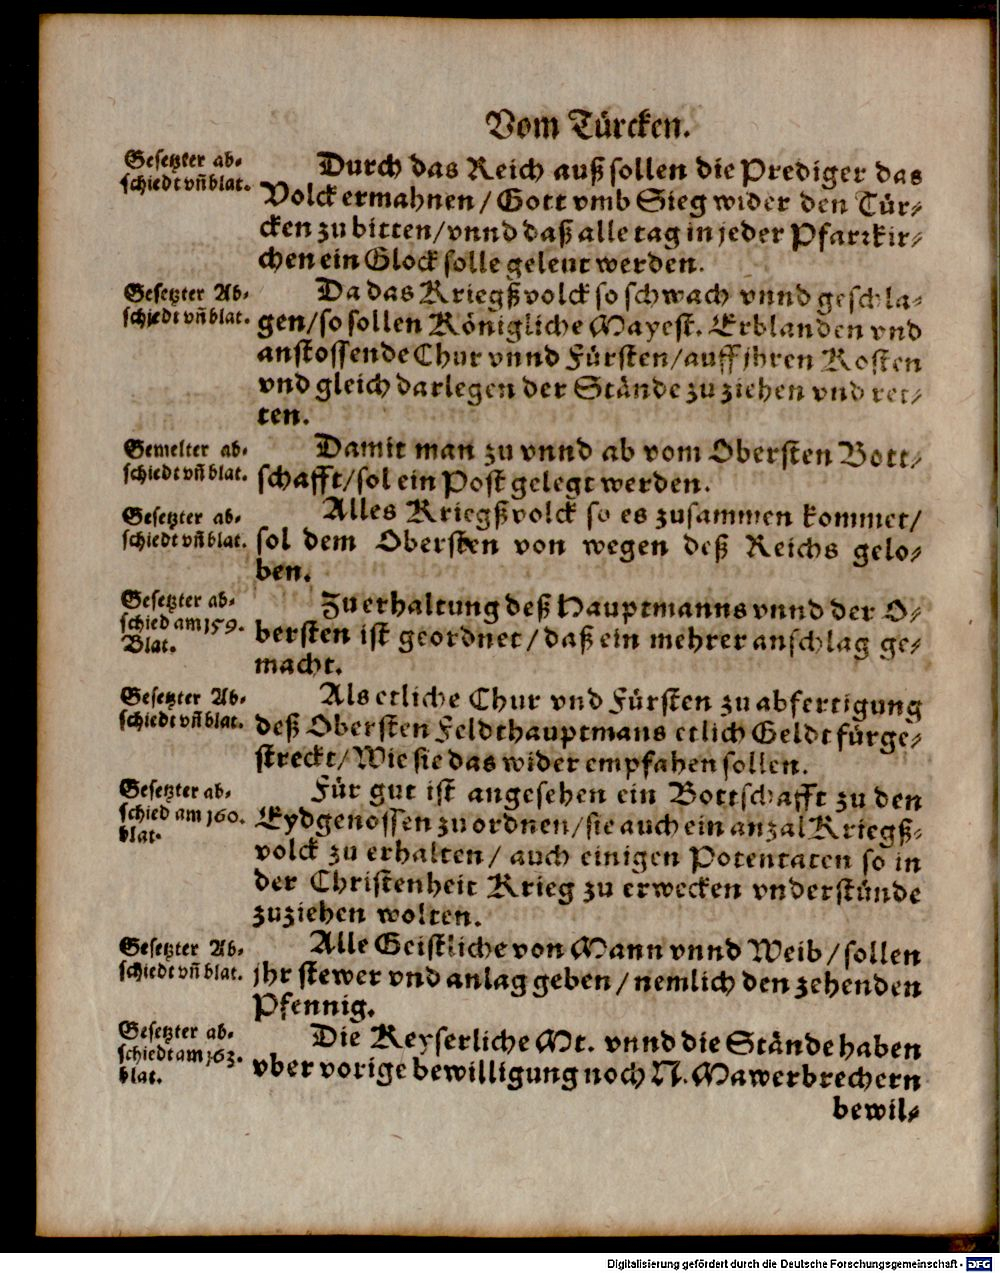 Vom Türcken.
Gesetzter ab-
schiedt vñ blat.
Durch das Reich auß sollen die Prediger das
Volck ermahnen / Gott vmb Sieg wider den Tür-
cken zu bitten / vnnd daß alle tag in jeder Pfarrkir-
chen ein Glock solle geleut werden.
Gesetzter Ab-
schiedt vñ blat.
Da das Kriegßvolck so schwach vnnd geschla-
gen / so sollen Königliche Mayest. Erblanden vnd
anstossende Chur vnnd Fürsten / auff jhren Kosten
vnd gleich darlegen der Stände zu ziehen vnd ret-
ten.
Gemelter ab-
schiedt vñ blat.
Damit man zu vnnd ab vom Obersten Bott-
schafft / sol ein Post gelegt werden.
Gesetzter ab-
schiedt vñ blat.
Alles Kriegßvolck so es zusammen kommet /
sol dem Obersten von wegen deß Reichs gelo-
ben.
Gesetzter ab-
schied am 159.
Blat.
Zu erhaltung deß Hauptmanns vnnd der O-
bersten ist geordnet / daß ein mehrer anschlag ge-
macht.
Gesetzter Ab-
schiedt vñ blat.
Als etliche Chur vnd Fürsten zu abfertigung
deß Obersten Feldthauptmans etlich Geldt fürge-
streckt / Wie sie das wider empfahen sollen.
Gesetzter ab-
schied am 160.
blat.
Für gut ist angesehen ein Bottschafft zu den
Eydgenossen zu ordnen / sie auch ein anzal Kriegß-
volck zu erhalten / auch einigen Potentaten so in
der Christenheit Krieg zu erwecken vnderstünde
zuziehen wolten.
Gesetzter Ab-
schiedt vñ blat.
Alle Geistliche von Mann vnnd Weib / sollen
jhr stewer vnd anlag geben / nemlich den zehenden
Pfennig.
Gesetzter ab-
schiedt am 163.
blat.
Die Keyserliche Mt. vnnd die Stände haben
vber vorige bewilligung noch N. Mawerbrechern
bewil-
Digitalisierung gefördert durch die Deutsche Forschungsgemeinschaft - DFG